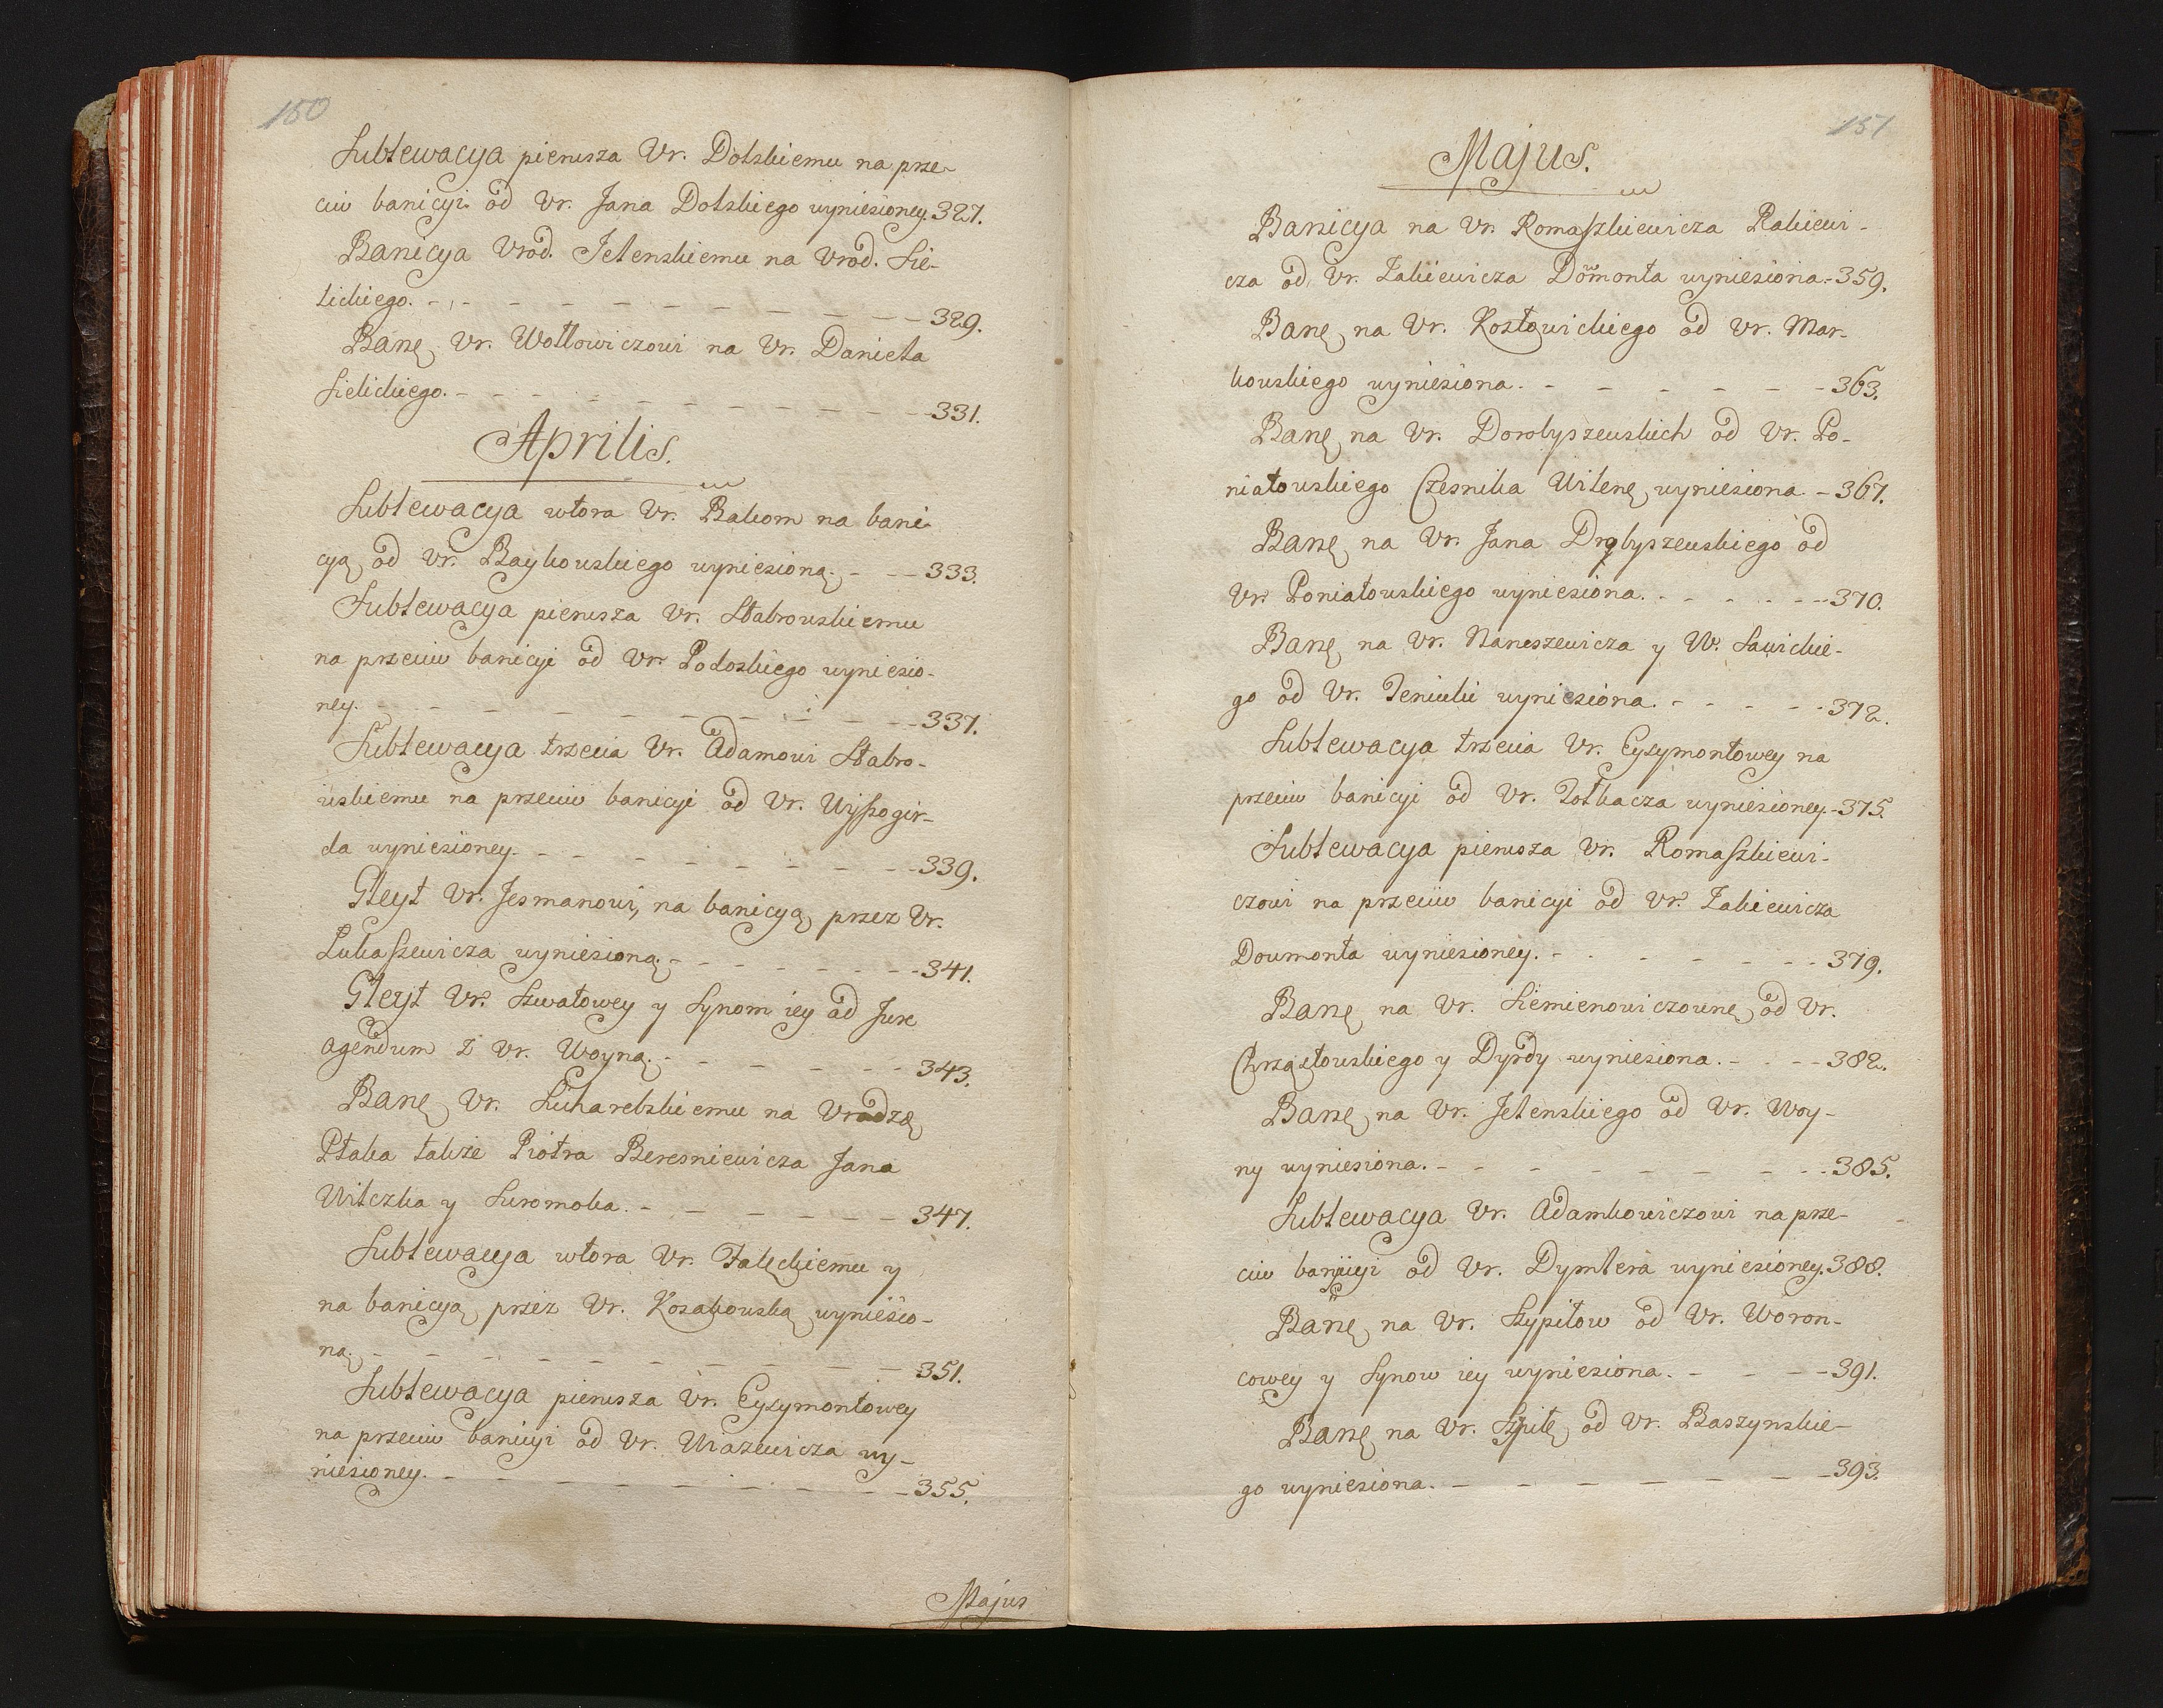 150
Sublewacya pierwsza Ur. Dolskiemu na prze-
ciw banicyi od Ur. Jana Dolskiego wyniesioney. 327.
Banicya Urod. Jelenskiemu na Urod. Sie-
lickiego. - - - - - - - - - 329.
Bane Ur. Wołłowiczowi na Ur. Danieła
Sielickiego. - - - - - - - - - 331.
Aprilis.
Sublewacya wtora Ur. Bakom na bani-
cyą od Ur. Baykowskiego wyniesioną. - - - 333.
Sublewacya pierwsza Ur. Stabrowskiemu
na przeciw banicyi od Ur. Podoskiego wyniesio-
ney. - - - - - - - - - 337.
Sublewacya trzecia Ur. Adamowi Stabro-
wskiemu na przeciw banicyi od Ur. Wyssogir-
da wyniesioney. - - - - - - - 339.
Gleyt Ur. Jesmanowi, na banicyą przez Ur.
Łukaszewicza wyniesioną. - - - - - - 341.
Gleyt Ur. Szwatowey y Synom iey ad Jure
agendum z Ur. Woyną. - - - - - 343.
Bane Ur. Sucharebskiemu na Urodze
Ptaka także Piotra Beresniewicza Jana
Wilczka y Suromoka. - - - - - - 347.
Sublewacya wtora Ur. Falęckiemu y
na banicyą przez Ur. Kosakowską wyniesio-
ną. - - - - - - - - - 351.
Sublewacya pierwsza Ur. Eysymontowey
na przeciw banicyi od Ur. Wiazewicza wy-
niesioney. - - - - - - - - 355.
Majus
151
Majus.
Banicya na Ur. Romaszkiewicza Rakiewi-
cza od Ur. Zakiewicza Dowmonta wyniesiona. - 359.
Bane na Ur. Kozłowickiego od Ur. Mar-
kowskiego wyniesiona. - - - - - - 363.
Bane na Ur. Dorobyszewskich od Ur. Po-
niatowskiego Czesnika Wilene wyniesiona - 367.
Bane na Ur. Jana Drobyszewskiego od
Ur. Poniatowskiego wyniesiona. - - - - - 370.
Bane na Ur. Naruszewicza y W. Sawickie-
go od Ur. Jeniuki wyniesiona. - - - - - 372.
Sublewacya trzecia Ur. Eysymontowey na
przeciw banicyi od Ur. Tołkacza wyniesioney. - 375.
Sublewacya pierwsza Ur. Romaszkiewi-
czowi na przeciw banicyi od Ur. Zakiewicza
Doumonta wyniesioney. - - - - - - 379.
Bane na Ur. Siemienowiczowne od Ur.
Chrząstowskiego y Dyrdy wyniesiona. - - - 382.
Bane na Ur. Jelenskiego od Ur. Woy-
ny wyniesiona. - - - - - - - 385.
Sublewacya Ur. Adamkowiczowi na prze-
ciw banicyi od Ur. Dymtera wyniesioney. 388.
Bane na Ur. Szpiłow od Ur. Woron-
cowey y Synow iey wyniesiona. - - - 391.
Bane na Ur. Szpiłę od Ur. Baszynskie-
go wyniesiona. - - - - - - - 393.